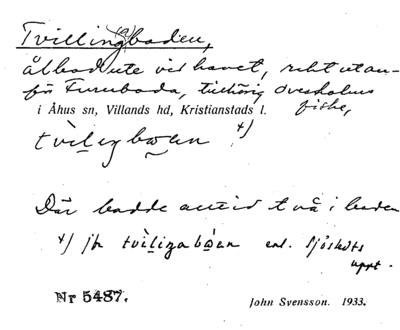 Tvilling(a)boden,
ålbod ute vid havet, rakt utan-
för Furuboda, tillhörig
i Åhus sn, Villands hd, Kristianstads l. fiske,
tvìleŋbo̤en x)
Där bodde alltid två i boden
x) jfr tvìliŋabòen enl. Sjöstedts
uppt.
Nr 5487.
John Svensson. 1933.